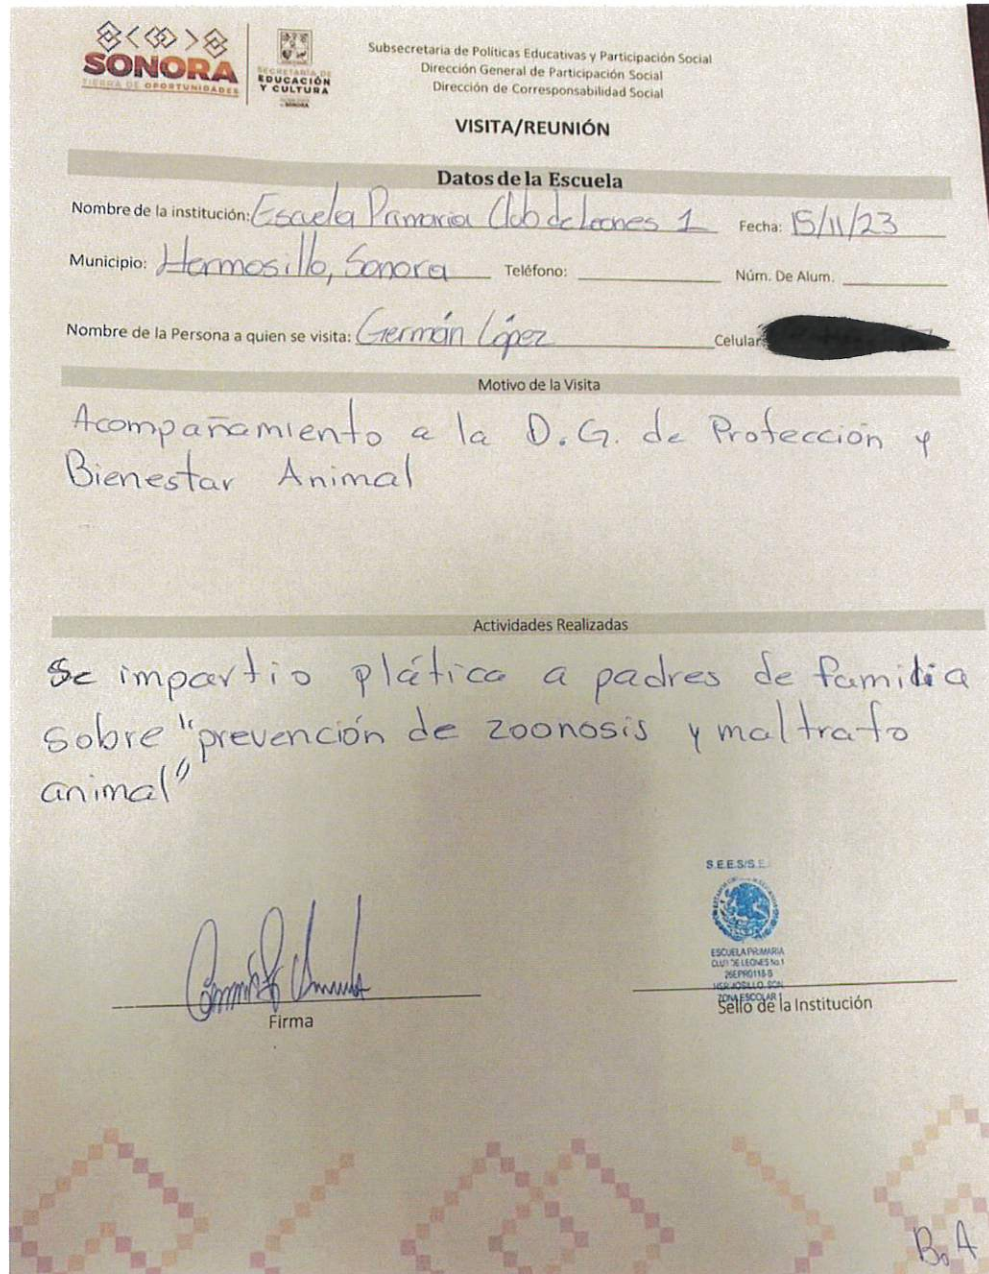 SONORA
TIERRA DE OPORTUNIDADES
SECRETARÍA DE
EDUCACIÓN
Y CULTURA
Subsecretaria de Políticas Educativas y Participación Social
Dirección General de Participación Social
Dirección de Corresponsabilidad Social
VISITA/REUNIÓN
Datos de la Escuela
Nombre de la institución: Escuela Primaria Club de Leones 1 Fecha: 15/11/23
Municipio: Hermosillo, Sonora Teléfono: Núm. De Alum.
Nombre de la Persona a quien se visita: Germán López Celular:
Motivo de la Visita
Acompañamiento a la D.G. de Protección y
Bienestar Animal
Actividades Realizadas
Se impartio plática a padres de familia
sobre "prevención de zoonosis y maltrato
animal"
S.E.E.S/S.E.
ESCUELA PRIMARIA
CLUB DE LEONES No.1
26EPR0118-B
HERMOSILLO, SON
ZONA ESCOLAR
Firma
Sello de la Institución
B.A